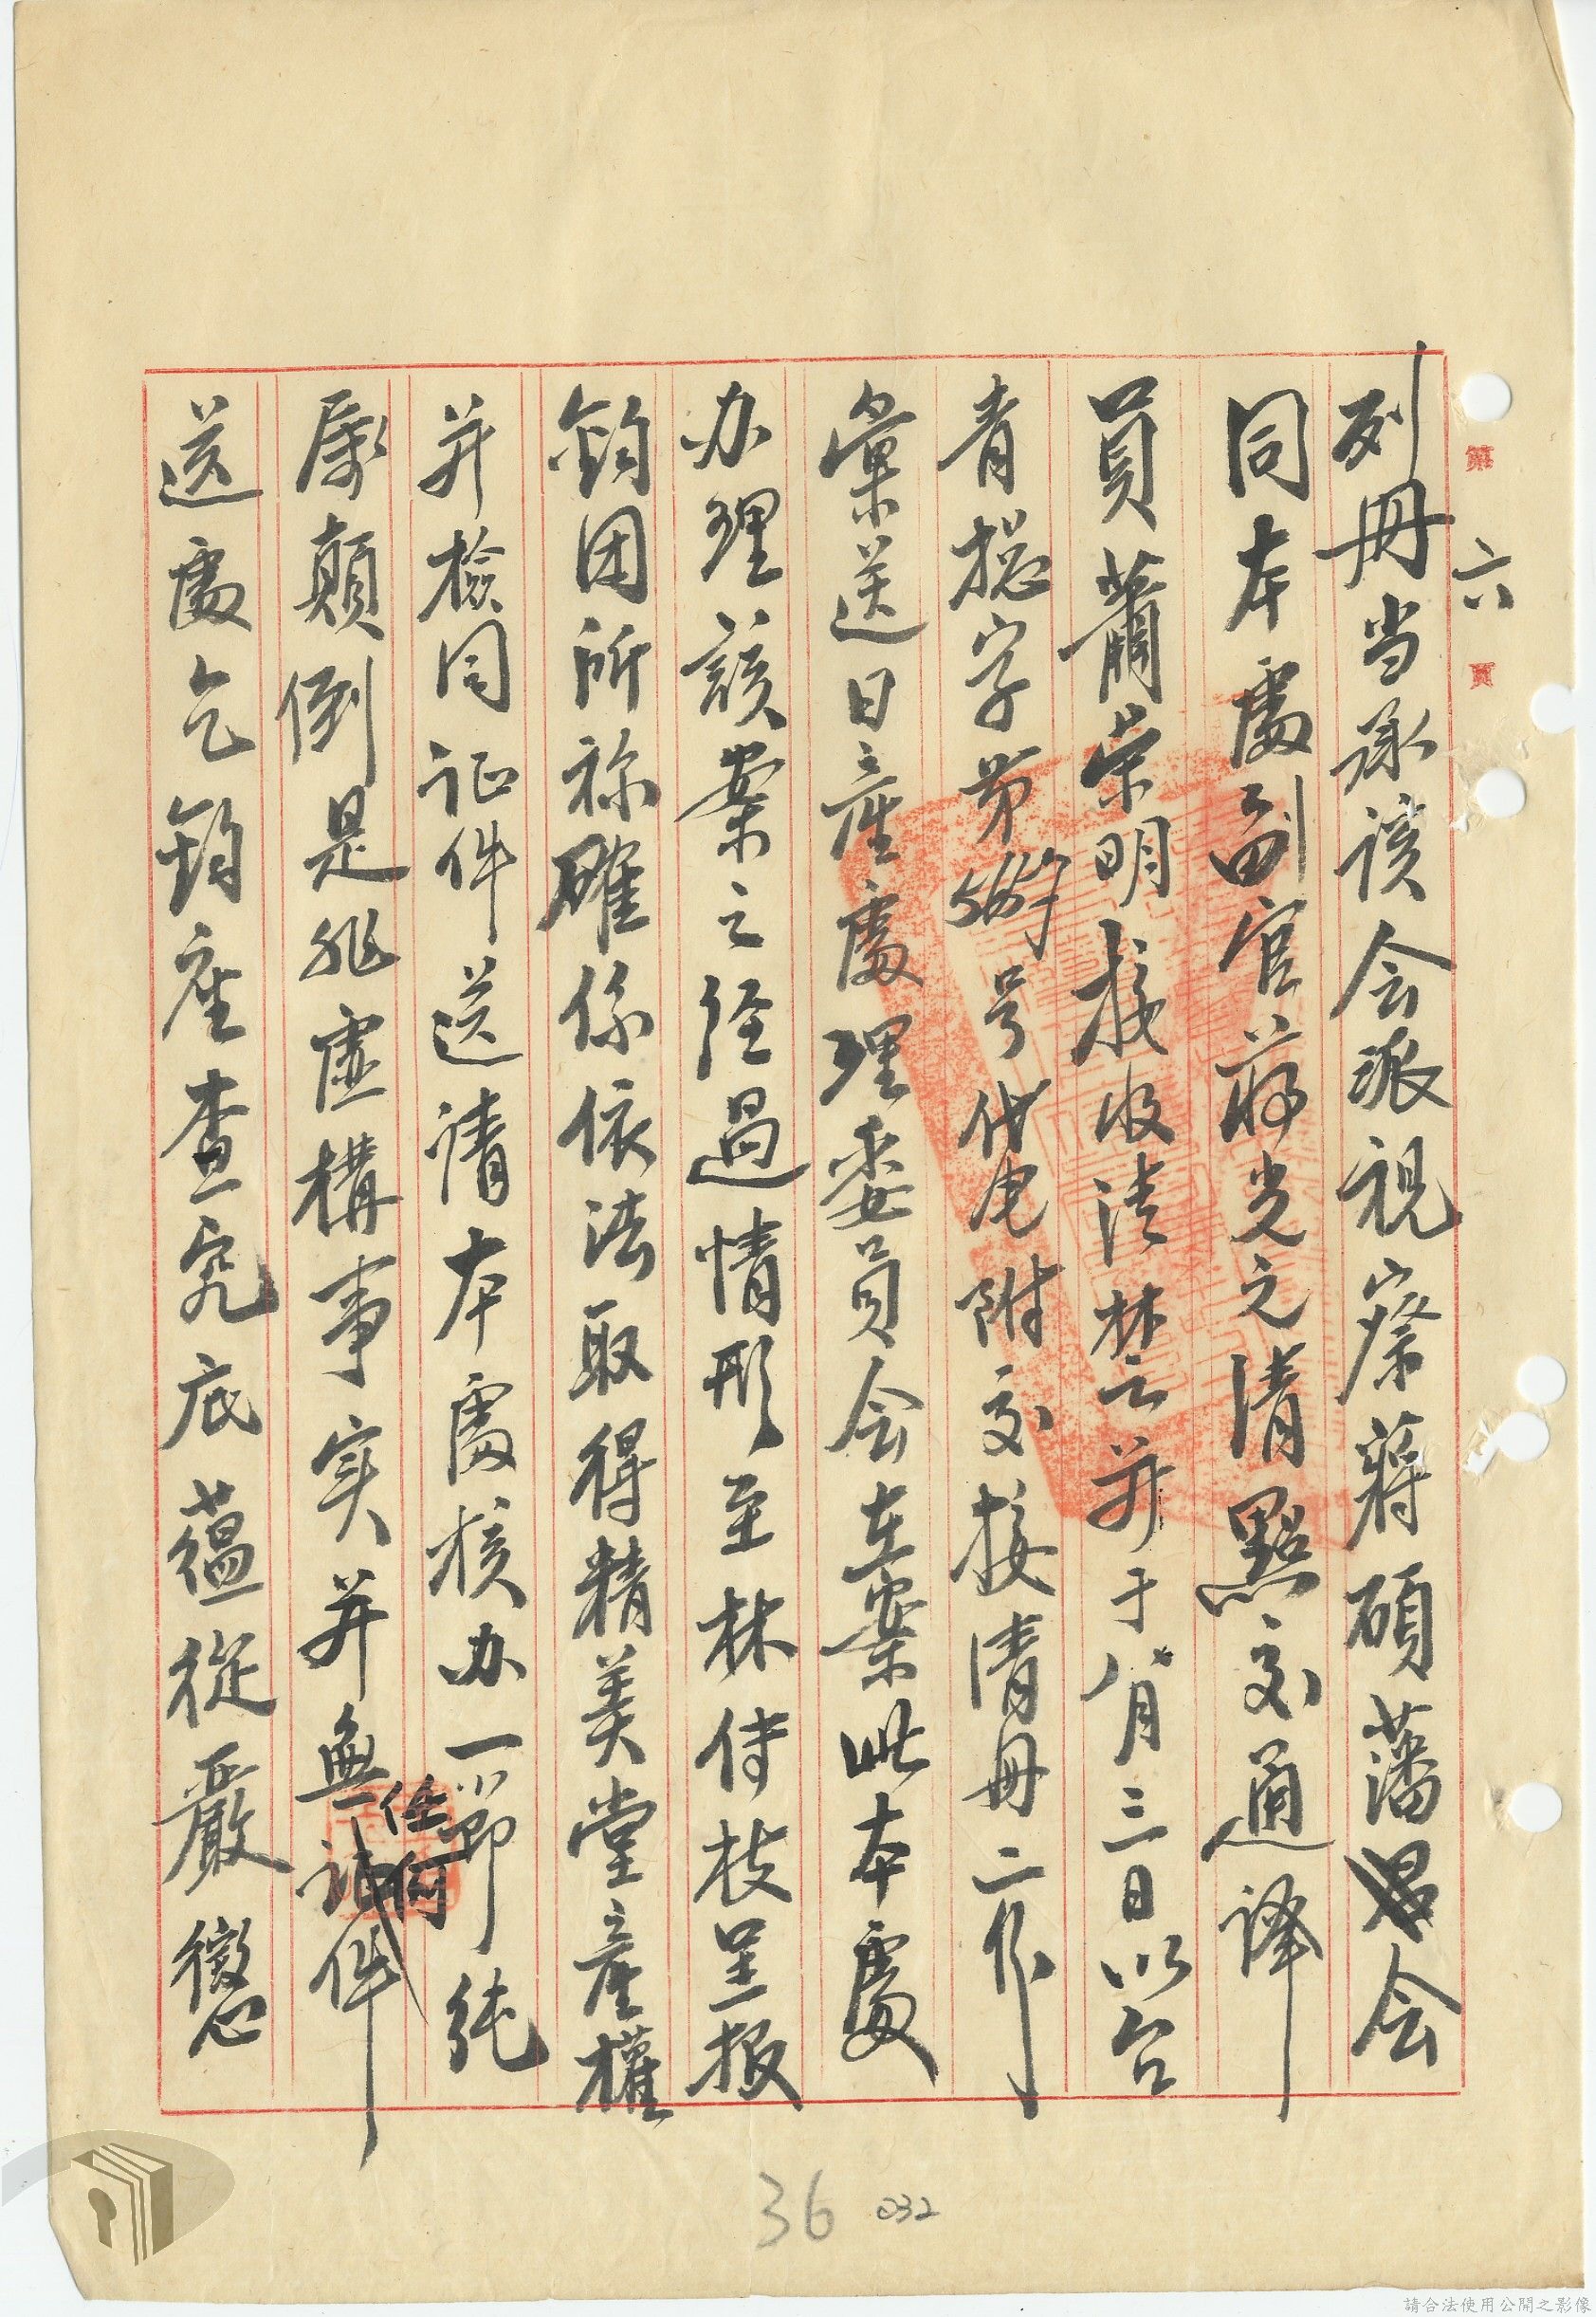 第六頁
列冊当承該会派視察蔣碩藩会
同本處副官蔣光之清點交通譯
員蕭荣明接收法禁云并于八月三日以台
青摠字第號代电附交接清冊二份
彙送日產處理委員会在案此本處
办理該案之径過情形至林侍枝呈报
鈞团所称確係依法取得精美堂產權
并檢同证件送請本處核办一節純
屬顛倒是非虛構事实并無任何件
送處乞鈞座查究底蘊從嚴懲
36 032
請合法使用公開之影像